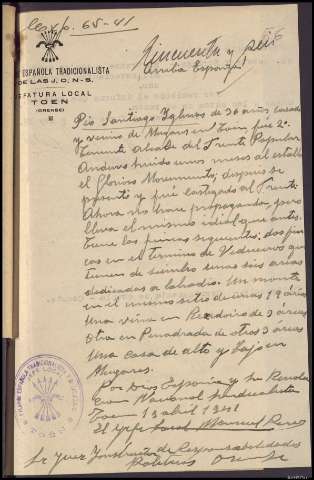 65-41
Cincuenta y seis
Arriba España!
ESPAÑOLA TRADICIONALISTA
DE LAS J. O. N-S.
JEFATURA LOCAL
TOEN
(ORENSE)
Pío Santiago Iglesias de 36 años casado
y vecino de Mugares en Toen fué 2º
Teniente alcalde del Frente Popular
Anduvo huido unos meses al estallar
el Glorioso Movimiento, después se
presentó y fué castigado al Frente.
Ahora no hace propaganda, pero
lleva el mismo ideal que antes.
tiene las fincas siguientes: dos fin-
cas en el termino de que
tienen de siembra unas seis areas
dedicadas a labradio. Un monte
en el mismo sitio de unas 19 áreas
Una viña en de 3 areas
otra en Penadrada de otros 3 areas
Una casa de alto y bajo en
Mugares.
Por Dios España y su Revolu
cion Nacional Sindicalista
Toen 13 abril 1941
El Jefe local
Sr Juez Instructor de Responsabilidades
Politicas Orense
TOEN